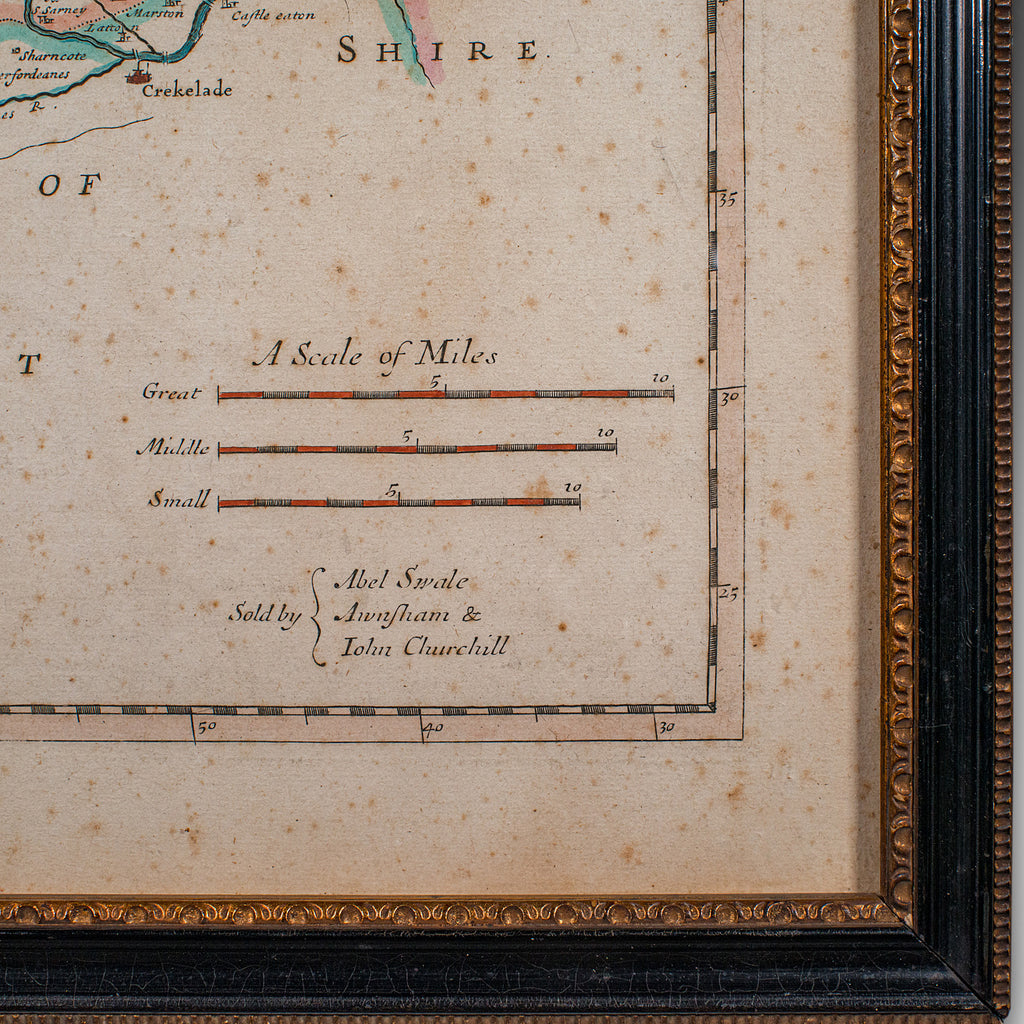 S Sarney
Marston
Castle eaton
Latton
Sharncote
erfordeanes
Crekelade
es R.
SHIRE.
OF
T
35
A Scale of Miles
Great 5 10
Middle 5 10
Small 5 10
30
25
Sold by { Abel Swale
Awnſham &
Iohn Churchill
50 40 30